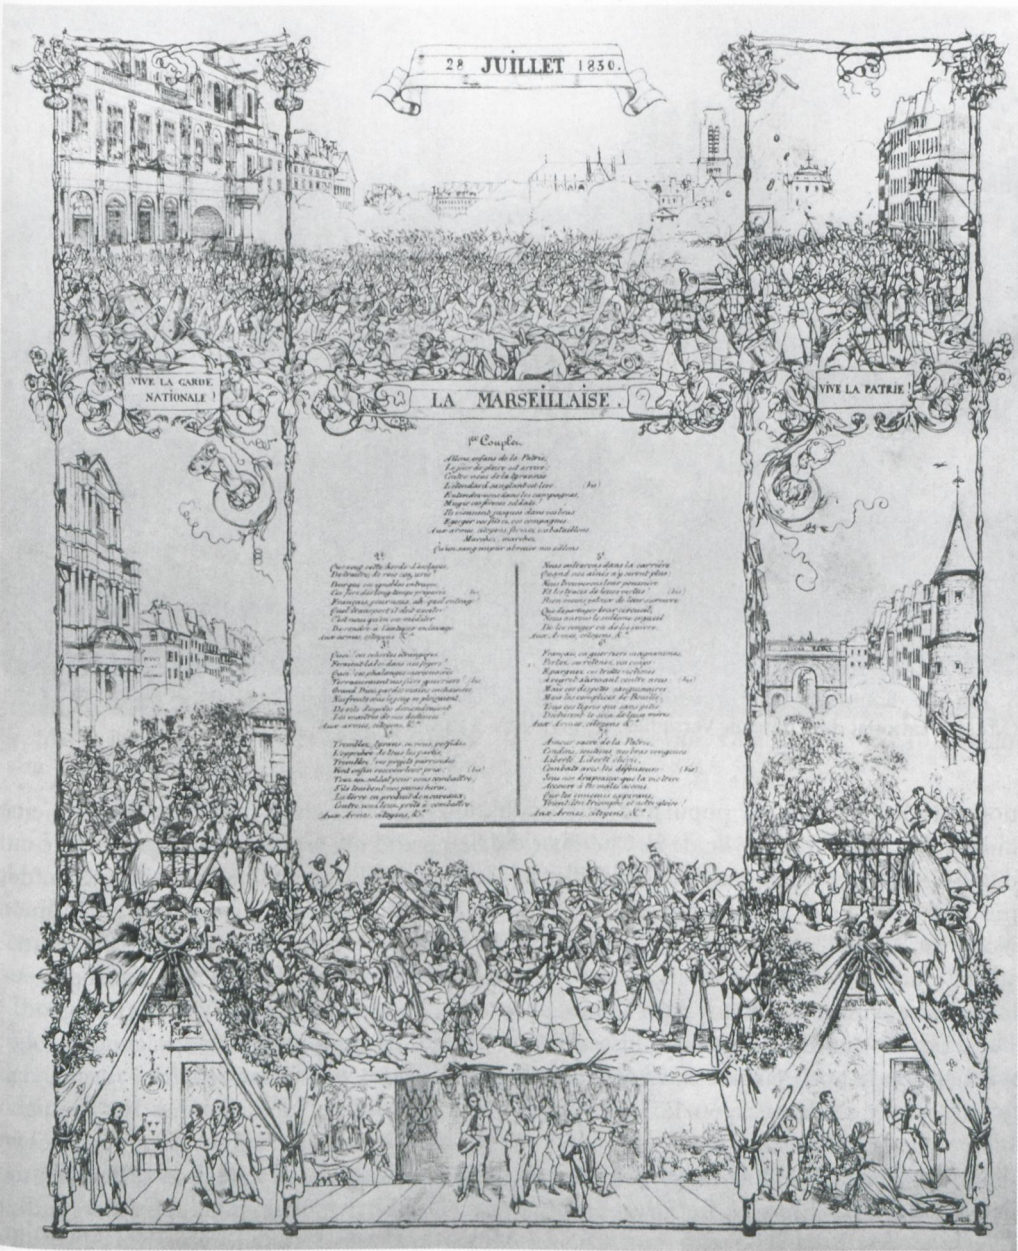 28 JUILLET 1830.
VIVE LA GARDE
NATIONALE !
LA MARSEILLAISE.
VIVE LA PATRIE !
1er Couplet.
Allons, enfans de la Patrie,
Le jour de gloire est arrivé;
Contre nous de la tyrannie
L'étendard sanglant est levé (bis)
Entendez-vous dans les campagnes,
Mugir ces féroces soldats
Ils viennent jusques dans vos bras
Egorger vos fils, vos compagnes.
Aux armes, citoyens, formez vos bataillons
Marchez, marchez,
Qu'un sang impur abreuve nos sillons
2e
Que veut cette horde d'esclaves,
De traîtres, de rois conjurés?
Pour qui ces ignobles entraves,
Ces fers dès longtemps préparés (bis)
Français, pour nous, ah! quel outrage!
Quel transport il doit exciter
C'est nous qu'on ose méditer
De rendre à l'antique esclavage
Aux armes, citoyens, &c.
3e
Quoi! ces cohortes étrangères
Feraient la loi dans nos foyers!
Quoi! ces phalanges mercenaires
Terrasseraient nos fiers guerriers! (bis)
Grand Dieu par des mains enchaînées
Nos fronts sous le joug se ploieraient
De vils despotes deviendraient
Les maîtres de nos destinées
Aux armes, citoyens, &c.
Tremblez, tyrans et vous perfides
L'opprobre de tous les partis,
Tremblez! vos projets parricides
Vont enfin recevoir leur prix. (bis)
Tout est soldat pour vous combattre,
S'ils tombent nos jeunes héros
La terre en produit de nouveaux
Contre vous tous prêts à combattre
Aux Armes, citoyens, &c.
Nous entrerons dans la carrière
Quand nos aînés n'y seront plus;
Nous trouverons leur poussière
Et les traces de leurs vertus! (bis)
Bien moins jaloux de leur survivre
Que de partager leur cercueil,
Nous aurons le sublime orgueil
De les venger ou de les suivre.
Aux Armes, citoyens, &c.
Français, en guerriers magnanimes,
Portez ou retenez vos coups
Epargnez ces tristes victimes
A regret s'armant contre nous. (bis)
Mais ces despotes sanguinaires
Mais les complices de Bouillé,
Tous ces tigres qui sans pitié
Déchirent le sein de leur mère
Aux Armes, citoyens, &c.
Amour sacré de la Patrie,
Conduis, soutiens nos bras vengeurs
Liberté, Liberté chérie,
Combats avec tes défenseurs (bis)
Sous nos drapeaux que la victoire
Accoure à tes mâles accens
Que tes ennemis expirans,
Voient ton triomphe et notre gloire!
Aux Armes, citoyens, &c.